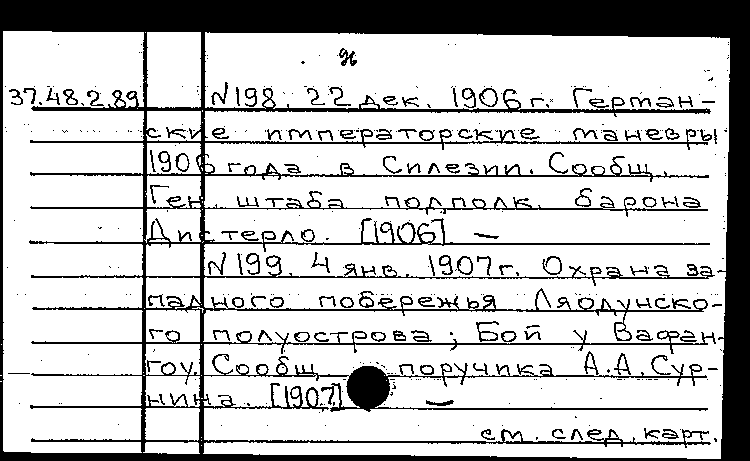 96
37.48.2.89 N198. 22 дек. 1906 г. Герман-
ские императорские маневры
1906 года в Силезии. Сообщ.
Ген. штаба подполк. барона
Дистерло. [1906] —
N199. 4 янв. 1907 г. Охрана за-
падного побережья Ляодунско-
го полуострова; Бой у Вафан-
гоу. Сообщ. поручика А.А. Сур-
нина. [1907] —
см. след. карт.